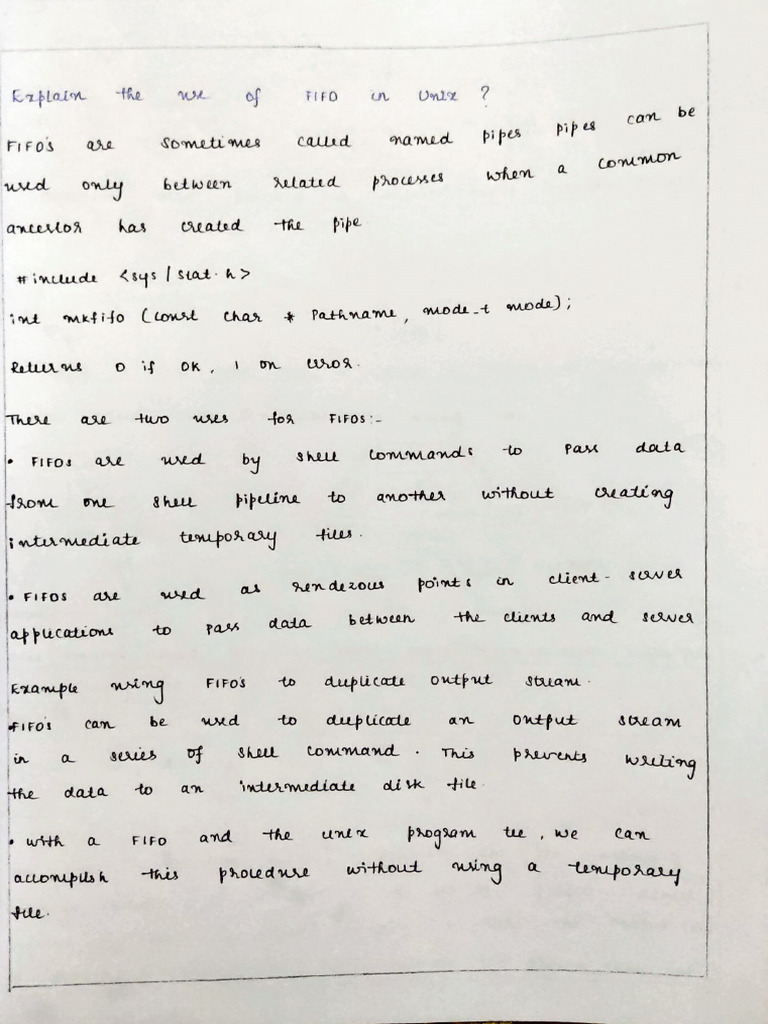 Explain the use of FIFO in Unix ?
FIFO's are sometimes called named pipes pipes can be
used only between related processes when a common
ancestor has created the pipe
#include <sys/stat.h>
int mkfifo (const char * Pathname, mode_t mode);
Returns 0 if OK, 1 on error.
There are two uses for FIFOS:-
• FIFOs are used by shell commands to pass data
from one shell pipeline to another without creating
intermediate temporary files.
• FIFOS are used as rendezous points in client-server
applications to pass data between the clients and server
Example using FIFO's to duplicate output stream.
•FIFO's can be used to duplicate an output stream
in a series of shell command. This prevents writing
the data to an intermediate disk file.
• with a FIFO and the unix program tee, we can
accomplish this procedure without using a temporary
file.